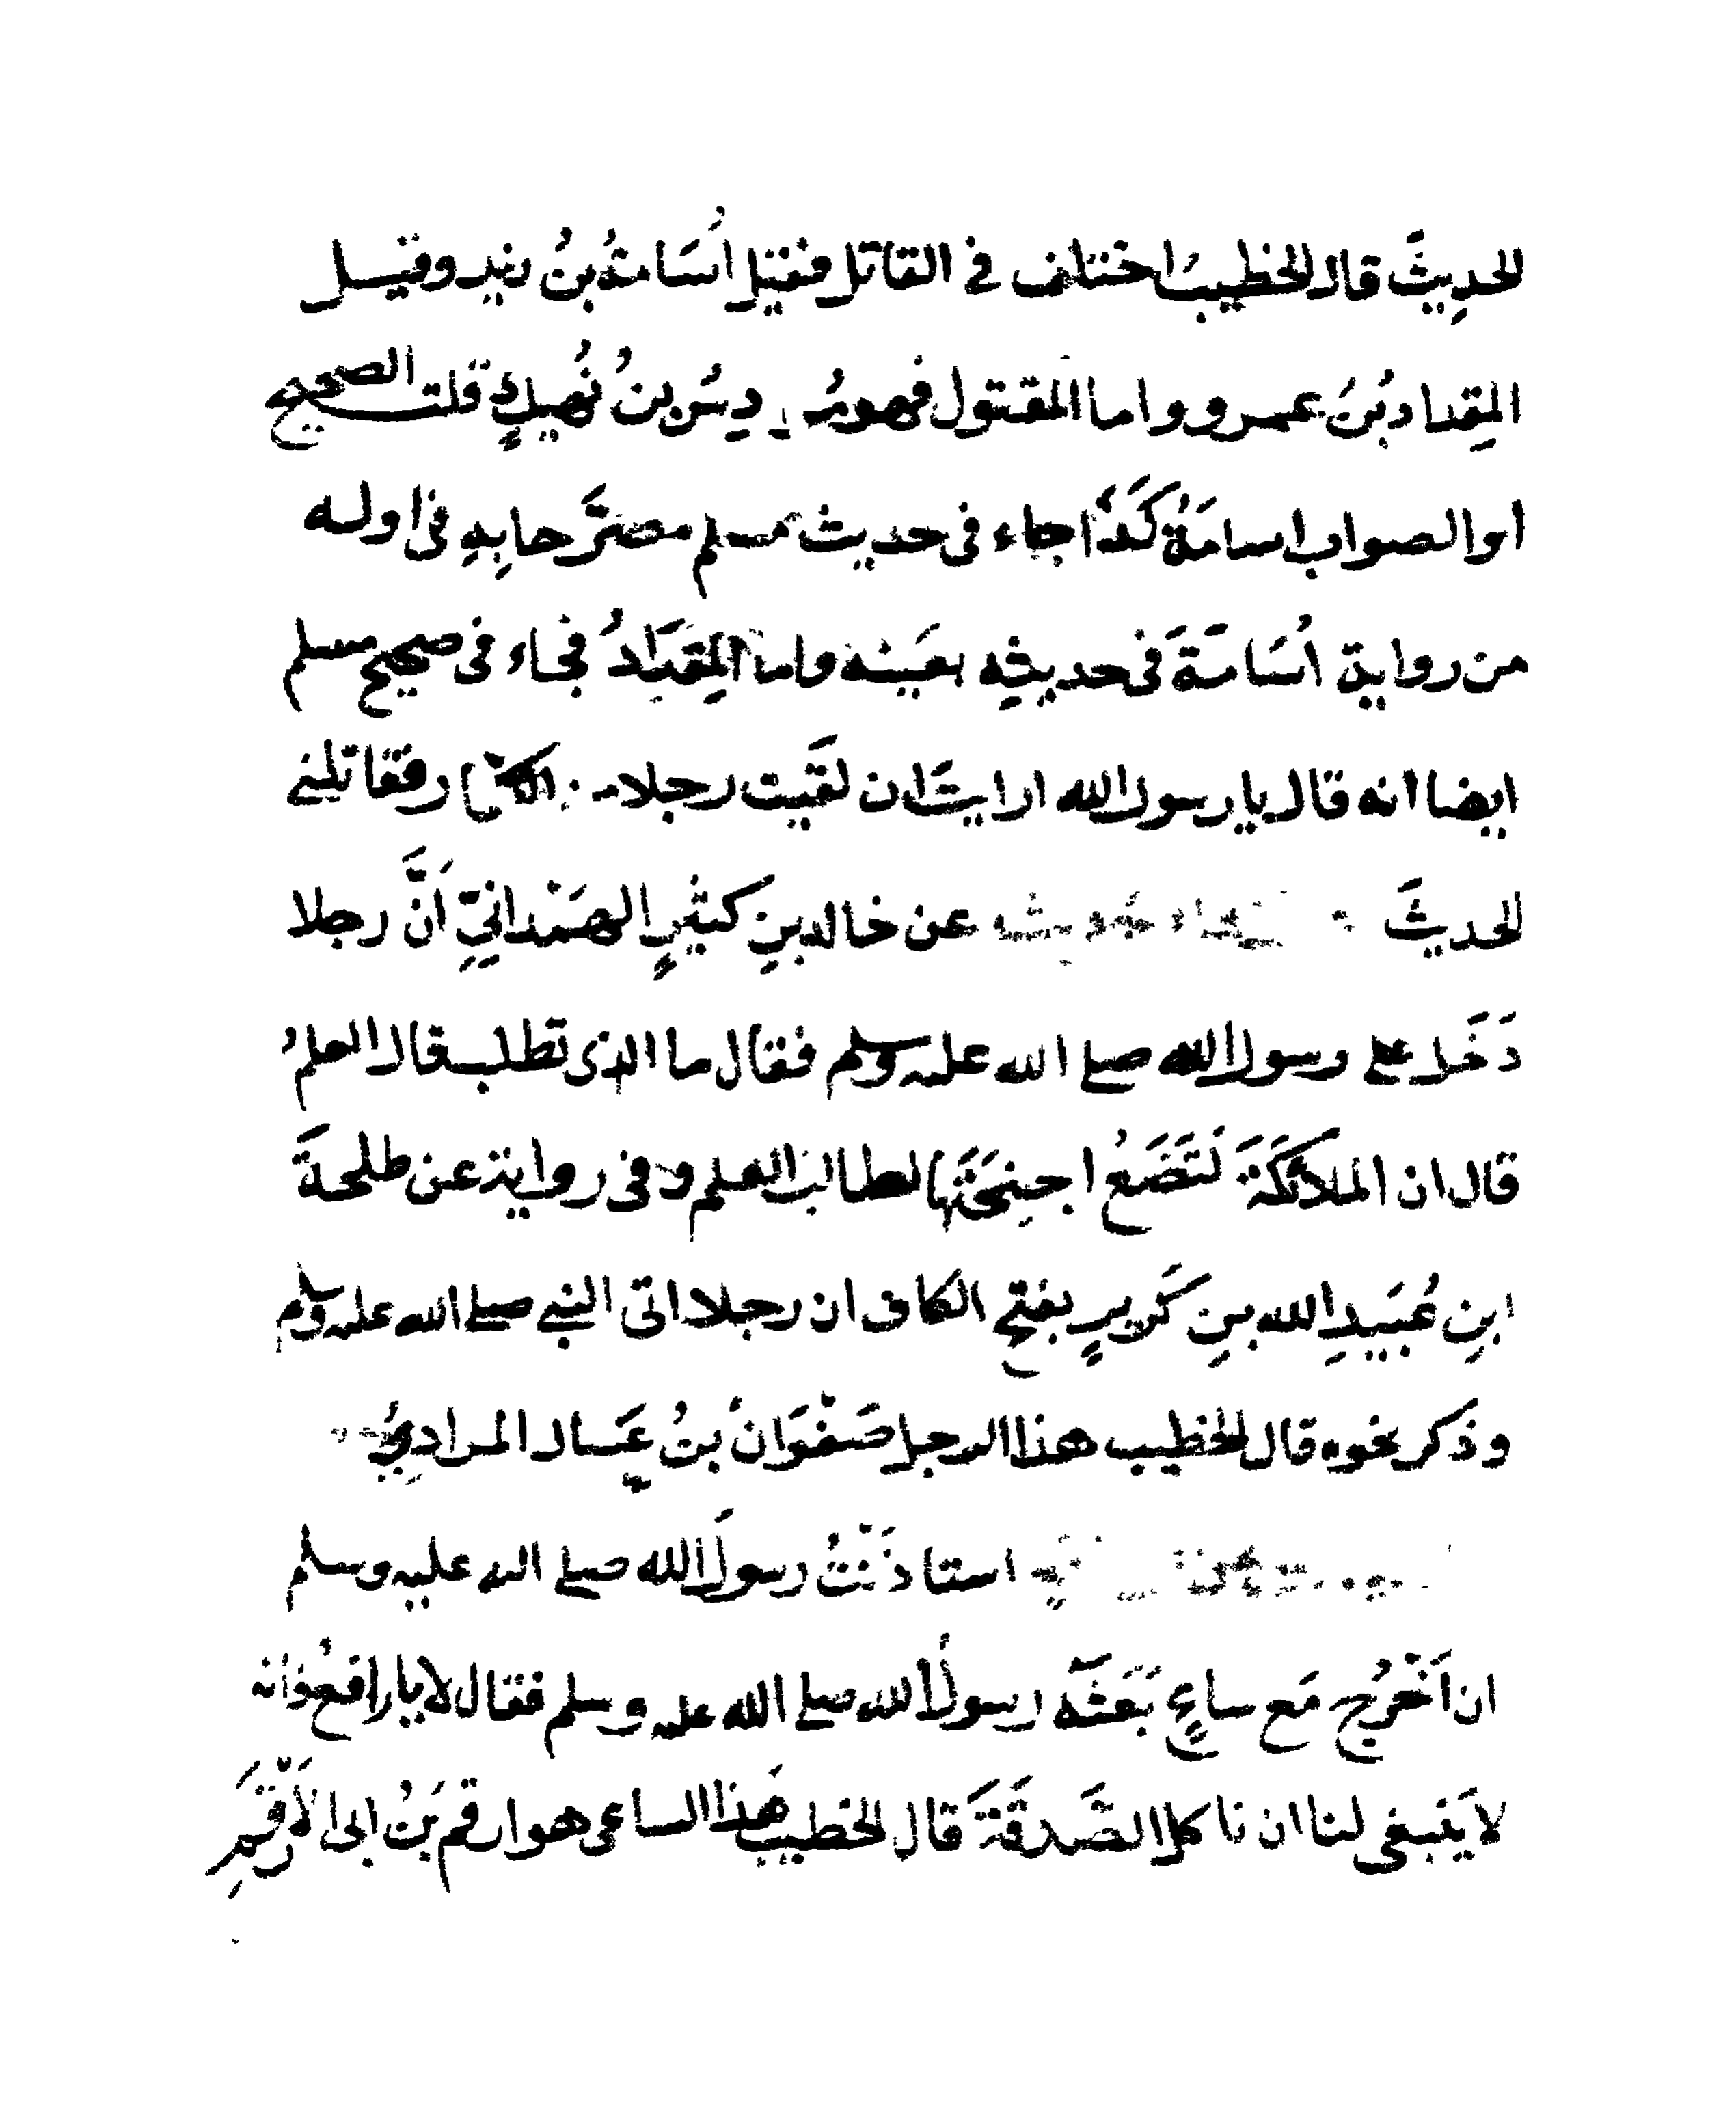 الحديثَ قال الخطيبُ اختلف في القاتل فقيل اُسَامةُ بنُ زيدٍ وقيل
المِقداد بنُ عمرو واما المقتول فهو مر دِسُ بنُ نُهيكٍ قلت الصحيح
او الصواب اسامَةُ كَذا جاء في حديث مسلم مصرَّحا بِهِ في اوله
من رواية اُسَامَةَ في حديثِه بعَينه واما المِقدَادُ فجاء في صحيح مسلم
ايضا انه قال يا رسول الله ارايتَ ان لقَيت رجلا من الكفار فقاتلني
الحديثَ حديث عن خالد بنِ كثيرٍ الهَمْدانيِّ اَنَّ رجلا
دَخَل على رسول الله صلى الله عليه وسلم فقال ما الذي تطلب قال العلمُ
قال ان الملائكَةَ لَتَضَعُ اجنِحَتَها لطالب العلم وفي رواية عن طلحةَ
ابنِ عُبَيدِ الله بنِ كَريزٍ بفتح الكاف ان رجلا اتى النبي صلى الله عليه وسلم
وذكر نحوه قال الخطيب هذا الرجل صَفْوَانُ بنُ عَسال المرادِيُّ
استاذَنْتُ رسولَ الله صلى الله عليه وسلم
ان اَخْرُج مَع ساعٍ بَعَثَهُ رسولُ الله صلى الله عليه وسلم فقال لا يا با رافعُ فانه
لا يَنبغي لنا ان ناكل الصَّدقَةَ قال الخطيب هَذا الساعي هو ارقم بَنُ ابي الاَرْقَمِ